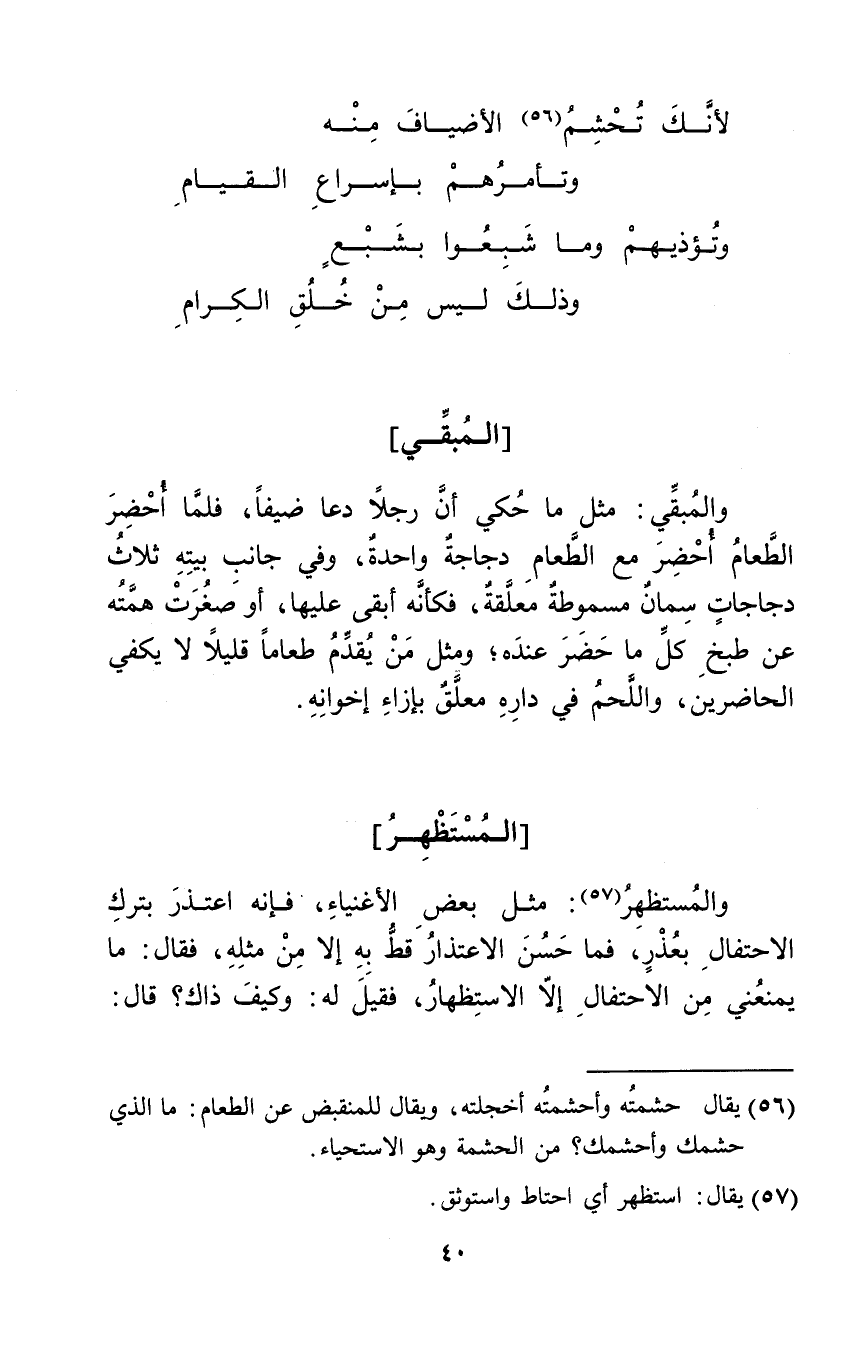 لأنَّكَ تُحْشِمُ(٥٦) الأضيافَ مِنْه
وتأمرُهمْ بإسراعِ القيامِ
وتُؤذيهمْ وما شَبِعُوا بشَبْعٍ
وذلكَ ليس مِنْ خُلُقِ الكِرامِ
[المُبقِّي]
والمُبقِّي: مثل ما حُكي أنَّ رجلًا دعا ضيفاً، فلمَّا أُحْضِرَ
الطَّعامُ أُحْضِرَ مع الطَّعامِ دجاجةٌ واحدةٌ، وفي جانبِ بيتِهِ ثلاثُ
دجاجاتٍ سِمانٌ مسموطةٌ معلَّقةٌ، فكأنَّه أبقى عليها، أو صغُرَتْ همَّتُه
عن طبخِ كلِّ ما حَضَرَ عندَه؛ ومثل مَنْ يُقدِّمُ طعاماً قليلًا لا يكفي
الحاضرينَ، واللَّحمُ في دارِهِ معلَّقٌ بإزاءِ إخوانِهِ.
[المُسْتَظْهِرُ]
والمُستظهِرُ(٥٧): مثل بعضِ الأغنياءِ، فإنه اعتذرَ بتركِ
الاحتفالِ بعُذْرٍ، فما حَسُنَ الاعتذارُ قطُّ بِهِ إلا مِنْ مثلِهِ، فقال: ما
يمنعُني مِن الاحتفالِ إلّا الاستِظهارُ، فقيلَ له: وكيفَ ذاك؟ قال:
(٥٦) يقال حشمتُه وأحشمتُه أخجلته، ويقال للمنقبض عن الطعام: ما الذي
حشمك وأحشمك؟ من الحشمة وهو الاستحياء.
(٥٧) يقال: استظهر أي احتاط واستوثق.
٤٠